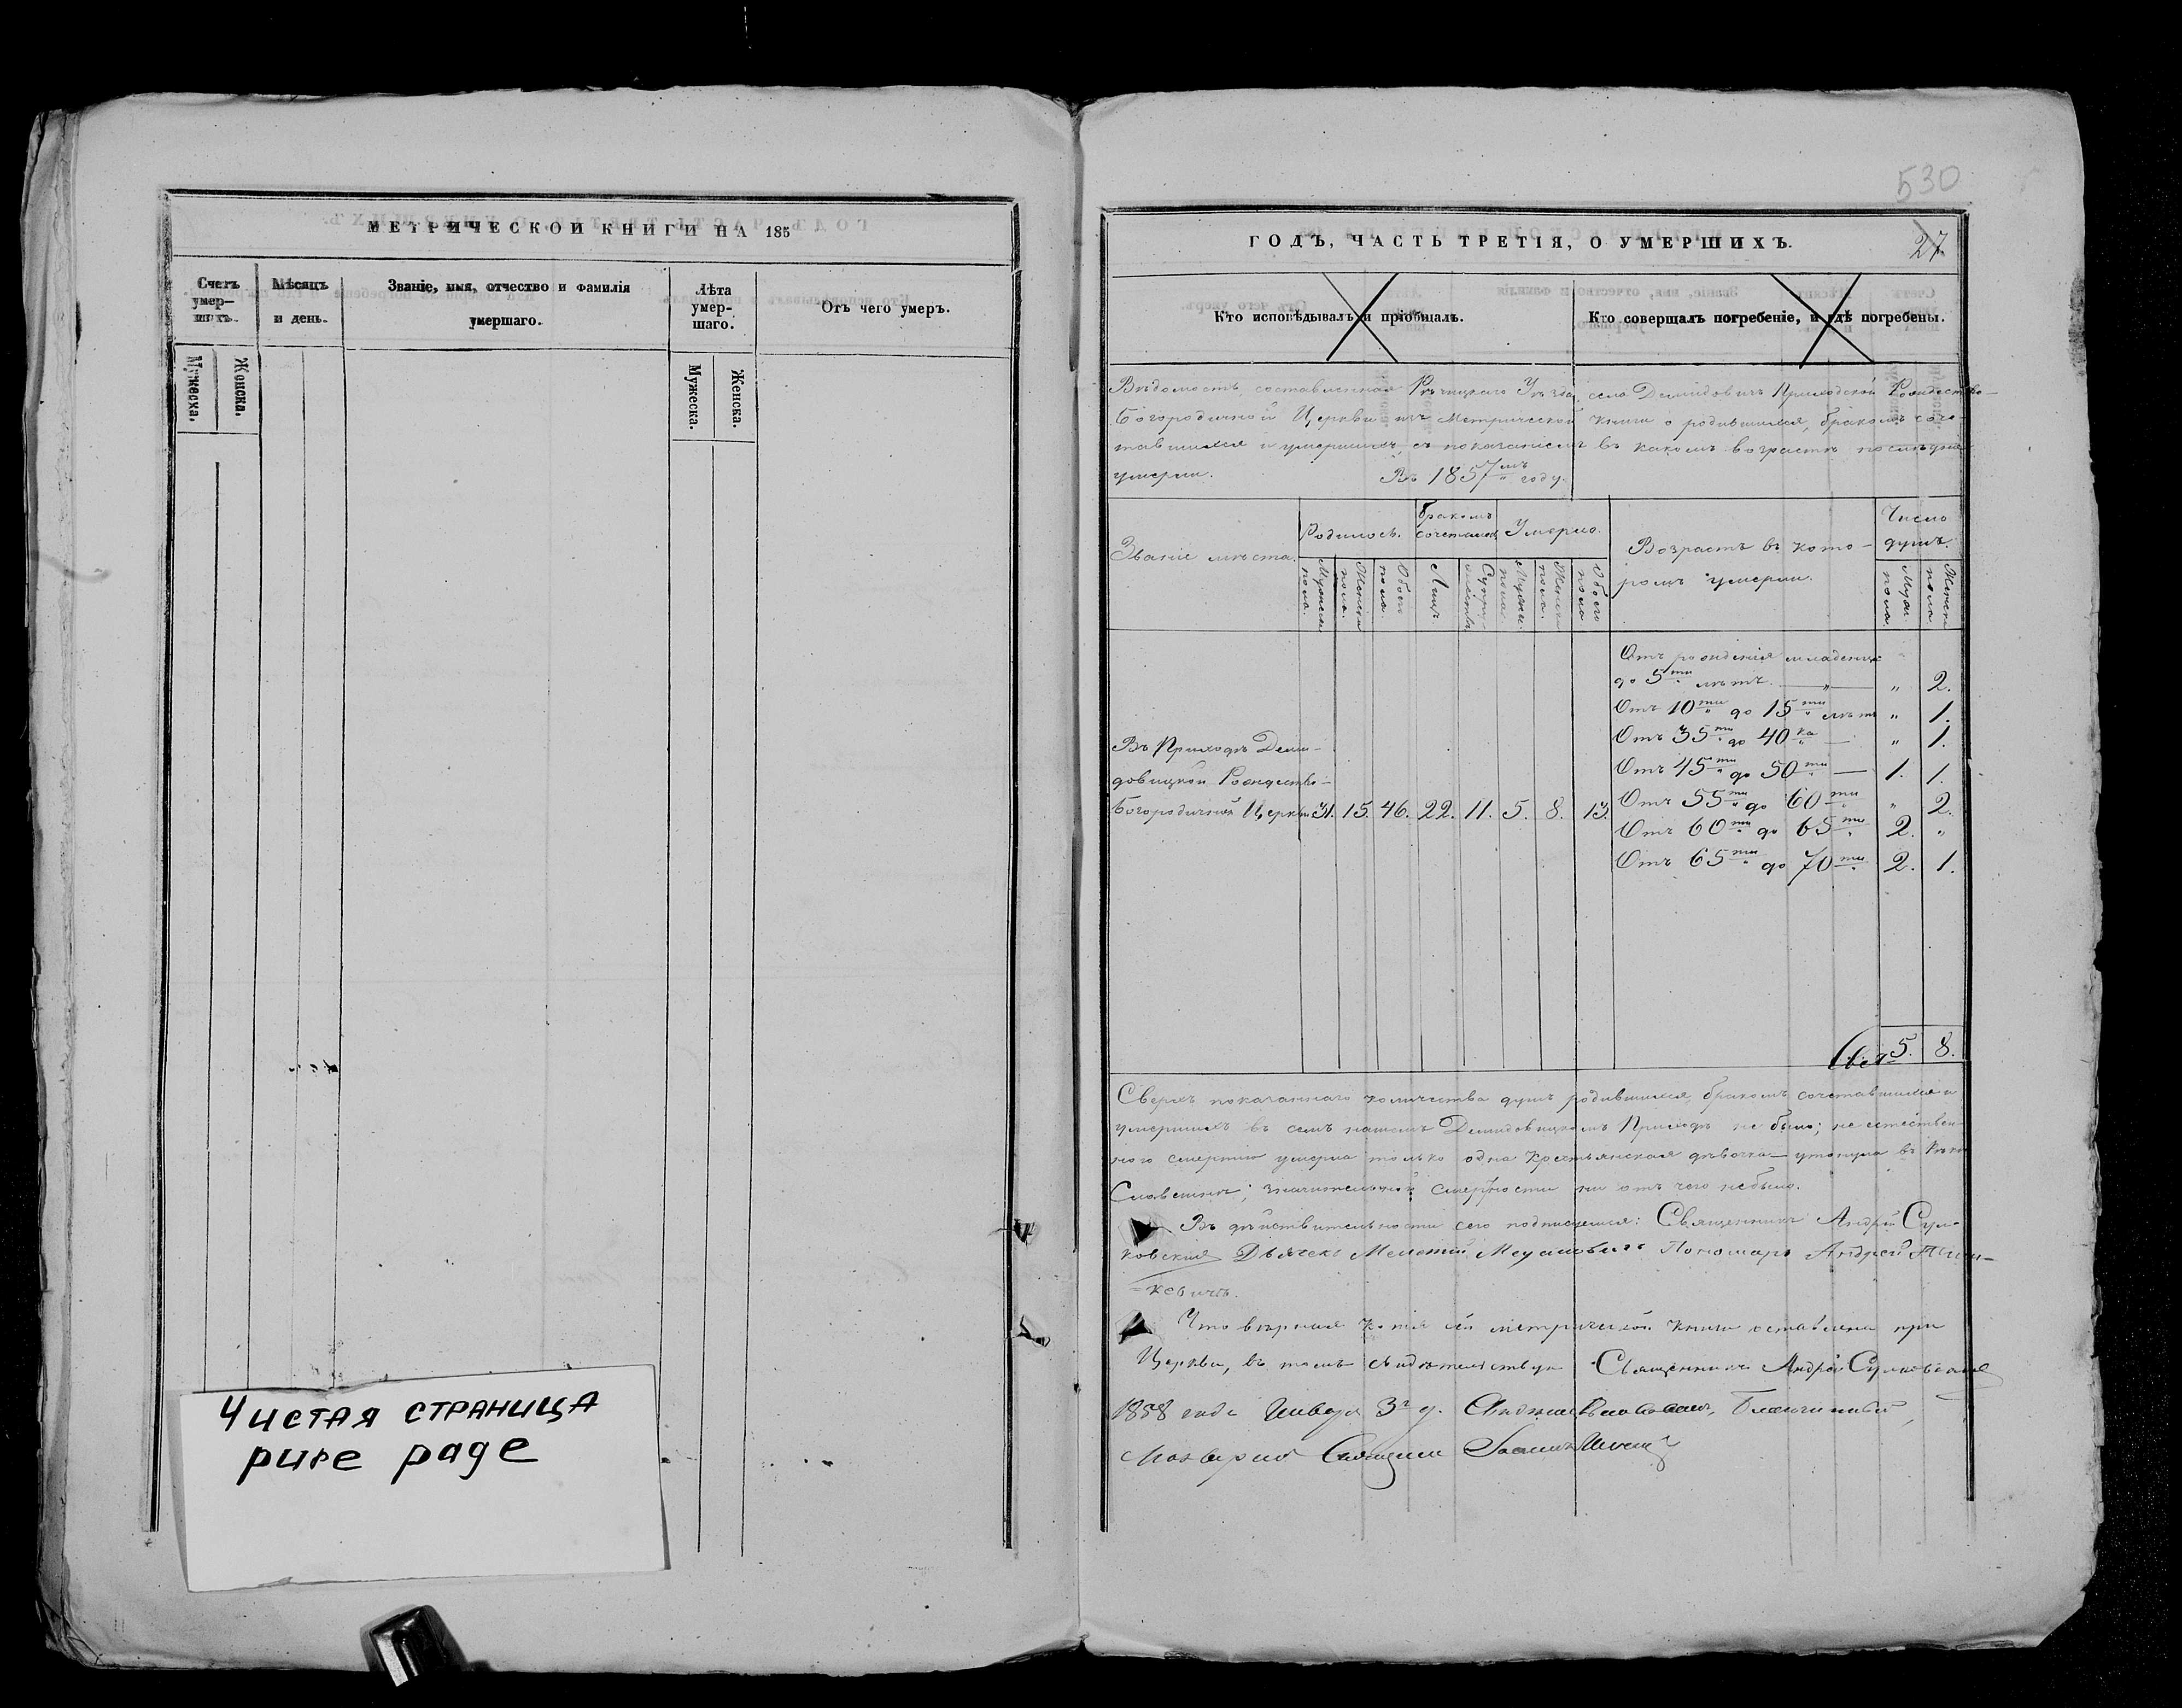 МЕТРИЧЕСКОЙ КНИГИ НА 185
Счетъ умер-шихъ.
Мѣсяцъ и день.
Званіе, имя, отчество и фамилія умершаго.
Лѣта умер-шаго.
Отъ чего умеръ.
Мужеска.
Женска.
Мужеска.
Женска.
Чистая страница
pure page
530
ГОДЪ, ЧАСТЬ ТРЕТІЯ, О УМЕРШИХЪ.
27.
Кто исповѣдывалъ и пріобщалъ.
Кто совершалъ погребеніе, и гдѣ погребены.
Вѣдомость, составленная Рѣчицкаго Уѣзда, села Демидовичъ Приходской Рождество-
Богородичной Церкви изъ Метрической книги о родившихся, бракомъ соче-
тавшихся и умершихъ, съ показаніемъ въ какомъ возрастѣ послѣдніе
умерли. Въ 1857мъ году.
Званіе мѣста.
Родилось.
Бракомъ сочеталось
Умерло.
Возрастъ въ кото-
ромъ умерли.
Число душъ.
Мужеска пола.
Женска пола.
Обоего пола.
Лицъ.
Супружествъ
Мужеск. пола.
Женска пола.
Обоего пола
Муж. пола.
Женск. пола.
Отъ рожденія младенца
до 5ти лѣтъ. — " — " 2.
Отъ 10ти до 15ти лѣтъ " 1.
Отъ 35ти до 40ка — " 1.
Отъ 45ти до 50ти — 1. 1.
Въ Приходѣ Деми-
довицкой Рождество-
Богородичной Церкви 31. 15. 46. 22. 11. 5. 8. 13.
Отъ 55ти до 60ти " 2.
Отъ 60ти до 65ти 2. "
Отъ 65ти до 70ти 2. 1.
5. 8.
Сверхъ показаннаго количества душъ родившихся, бракомъ сочетавшихся и
умершихъ въ семъ нашемъ Демидовицкомъ Приходѣ не было; не естествен-
ною смертію умерла только одна крестьянская дѣвочка — утонула въ рѣкѣ
Славешнѣ; значительной смертности ни отъ чего небыло.
Въ дѣйствительности сего подписуемся: Священникъ Андрей Сул-
ковскій Дьячекъ Мелетій Пономарь Андрей
-кевичъ.
Что вѣрная копія сей метрической книги оставлена при
Церкви, въ томъ свидѣтельствую Священникъ Андрей Сулковскій
1858 года Января 3го д. Благочинный,
Іоаннъ